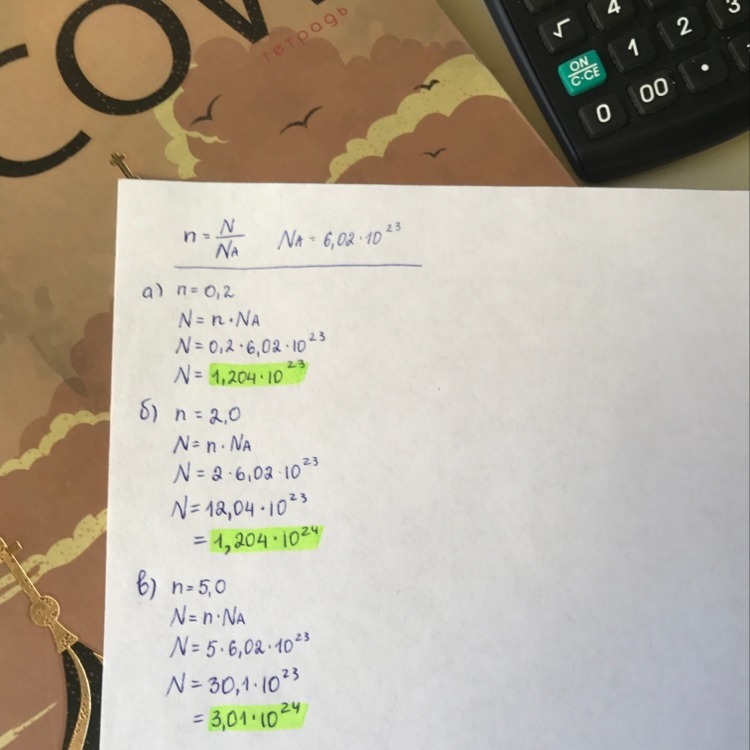 COV
тетрадь
√ 4 3
ON
C·CE 1 2
0 00 •
n = N/NA NA = 6,02·10²³
а) n = 0,2
N = n·NA
N = 0,2·6,02·10²³
N = 1,204·10²³
б) n = 2,0
N = n·NA
N = 2·6,02·10²³
N = 12,04·10²³
= 1,204·10²⁴
в) n = 5,0
N = n·NA
N = 5·6,02·10²³
N = 30,1·10²³
= 3,01·10²⁴